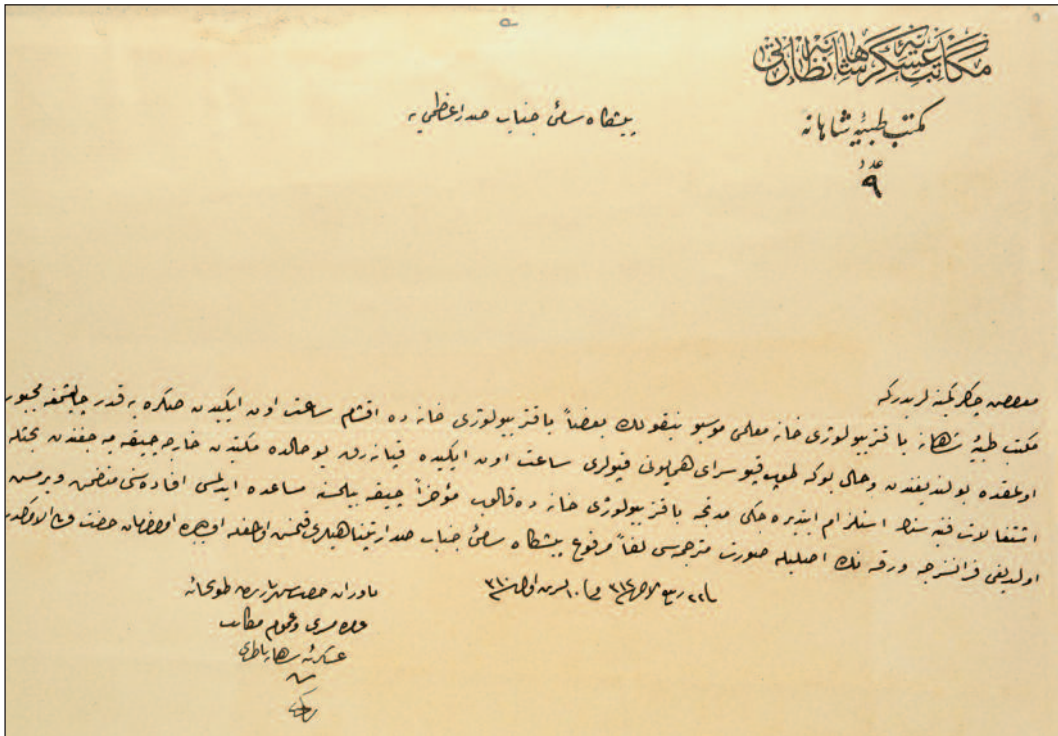 مكاتب عسكريۀ شاهانه نظارتى
مكتب طبيۀ شاهانه
عدد
٩
پيشگاه سامئ جناب صدر اعظمى يه
معروض چاكر كمينه لريدركه
مكتب طبيۀ شاهانه باقتريولوژى خانه معلمى موسيو نيقولك بعضاً باقتريولوژى خانه ده اقشام ساعت اون ايكيدن صكره يه قدر چالشمغه مجبور
اولمقده بولنديغندن وحال بوكه طوپ قپو سراى همايونى قپولرى ساعت اون ايكيده قپانه رق بو حالده مكتبدن خارجه چيقه ميه جغندن بحثله
اشتغالات فنيه سنك استلزام ايتديره جكى مدتجه باقتريولوژى خانه ده قالوب مؤخراً چيقه بيلمسنه مساعده ايدلمسى افاده سنى متضمن ويرمش
اولديغى فرانسزجه ورقه نك اصليله صورت مترجمه سى لفاً مرفوع پيشگاه سامئ جناب صدارتپناهيلرى قلنمش اولمغله اولبابده امر وفرمان حضرت من له الامركدر
فى ٢٢ ربيع الاخر ٣١٢ وفى ١٠ تشرين اول ٣١٠
ياوران حضرت شهرياريدن طوپخانه
عامره مشيرى وعموم مكاتب
عسكريۀ شاهانه ناظرى